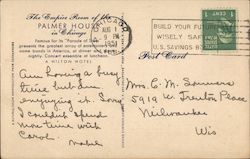 The Empire Room of the
PALMER HOUSE
in Chicago
Famous for its "Parade of
presents the greatest array of entertainment
name bands in America, at dinner and
nightly. Concert ensemble at luncheon.
A HILTON HOTEL
CHICAGO
AUG 1
9 PM
1951
BUILD YOUR FU
WISELY SAF
U.S. SAVINGS B
1¢
Post Card
Am having a busy
time but am
enjoying it. Sorry
I couldn't spend
more time with
Carol.
Mabel
Mrs. C. M. Sauvers
5919 W. Trenton Place
Milwaukee
Wis